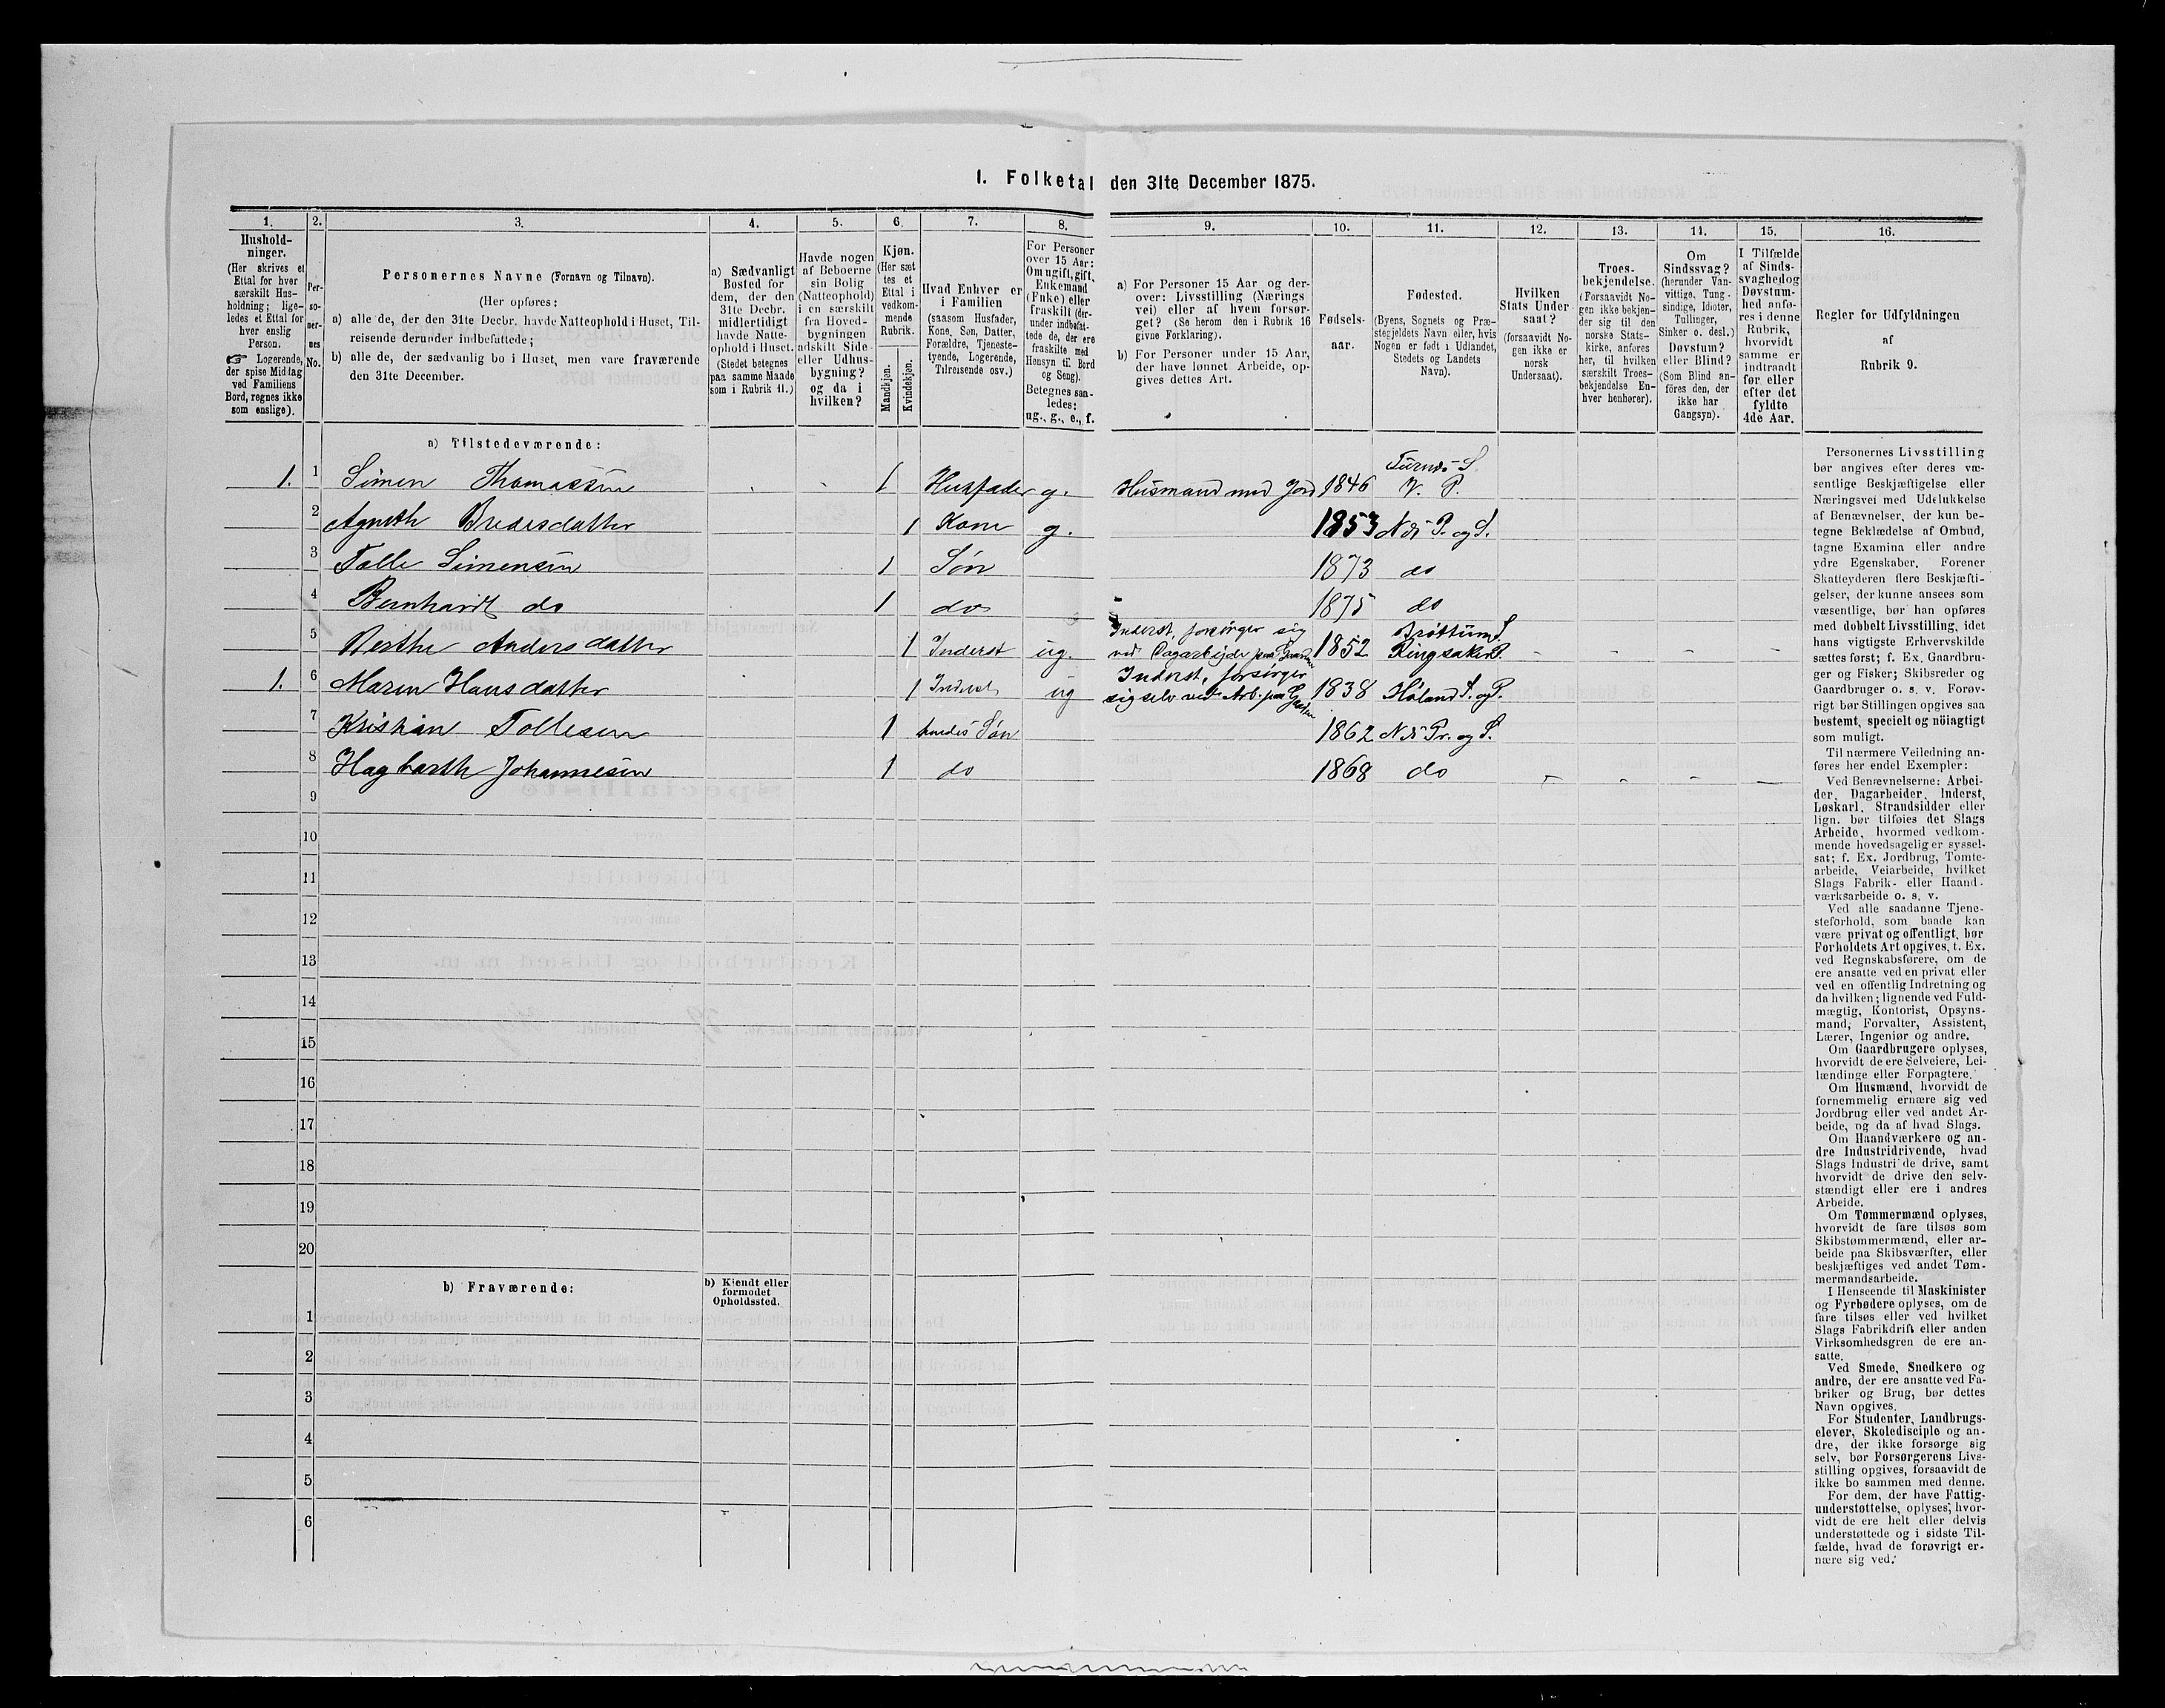 1. Folketal den 31te December 1875.
1. 2. 3. 4. 5. 6. 7. 8. 9. 10. 11. 12. 13. 14. 15. 16.
Hushold-
ninger.
(Her skrives et
Ettal for hver
særskilt Hus-
holdning; lige-
ledes et Ettal for
hver enslig
Person.
☞ Logerende,
der spise Middag
ved Familiens
Bord, regnes ikke
som enslige).
Per-
so-
ner-
nes
No.
Personernes Navne (Fornavn og Tilnavn).
(Her opføres:
a) alle de, der den 31te Decbr. havde Natteophold i Huset, Til-
reisende derunder indbefattede;
b) alle de, der sædvanlig bo i Huset, men vare fraværende
den 31te December.
a) Sædvanligt
Bosted for
dem, der den
31te Decbr.
midlertidigt
havde Natte-
ophold i Huset.
(Stedet betegnes
paa samme Maade
som i Rubrik 11.)
Havde nogen
af Beboerne
sin Bolig
(Natteophold)
i en særskilt
fra Hoved-
bygningen
adskilt Side-
eller Udhus-
bygning?
og da i
hvilken?
Kjøn.
(Her sæt-
tes et
Ettal i
vedkom-
mende
Rubrik.
Mandkjøn.
Kvindekjøn.
Hvad Enhver er
i Familien
(saasom Husfader,
Kone, Søn, Datter,
Forældre, Tjeneste-
tyende, Logerende,
Tilreisende osv.)
For Personer
over 15 Aar:
Om ugift, gift,
Enkemand
(Enke) eller
fraskilt (der-
under indbefat-
tede de, der ere
fraskilte med
Hensyn til Bord
og Seng).
Betegnes saa-
ledes:
ug., g., e., f.
a) For Personer 15 Aar og der-
over: Livsstilling (Nærings-
vei) eller af hvem forsør-
get? (Se herom den i Rubrik 16
givne Forklaring).
b) For Personer under 15 Aar,
der have lønnet Arbeide, op-
gives dettes Art.
Fødsels-
aar.
Fødested.
(Byens, Sognets og Præ-
stegjeldets Navn eller, hvis
Nogen er født i Udlandet,
Stedets og Landets
Navn).
Hvilken
Stats Under-
saat?
(forsaavidt No-
gen ikke er
norsk
Undersaat).
Troes-
bekjendelse.
(Forsaavidt No-
gen ikke bekjen-
der sig til den
norske Stats-
kirke, anføres
her, til hvilken
særskilt Troes-
bekjendelse En-
hver henhører).
Om
Sindssvag?
(herunder Van-
vittige, Tung-
sindige, Idioter,
Tullinger,
Sinker o. desl.)
Døvstum?
eller Blind?
(Som Blind an-
föres den, der
ikke har
Gangsyn).
I Tilfælde
af Sinds-
svaghed og
Døvstum-
hed anfø-
res i denne
Rubrik,
hvorvidt
samme er
indtraadt
før eller
efter det
fyldte
4de Aar.
Regler for Udfyldningen
af
Rubrik 9.
a) Tilstedeværende:
1. 1 Simen Thomassen 1 Husfader g. Husmand med Jord 1846 Furnæs S. V. P.
2 Agneth Bredesdatter 1 Kone g. 1853 Næs P. og S.
3 Tolle Simensen 1 Søn 1873 do
4 Bernhardt do 1 do 1875 do
5 Berthe Andersdatter 1 Inderst ug. Inderst, forsørger sig ved Dagarbejde paa Gaarden 1852 Brøttum S. Ringsaker P.
1. 6 Maren Hansdatter 1 Inderst ug Inderst, forsørger sig selv ved Arb. paa Gaarden 1838 Høland S. og P.
7 Kristian Tollesen 1 hendes Søn 1862 Næs Pr. og S.
8 Hagbarth Johannesen 1 do 1868 do
9
10
11
12
13
14
15
16
17
18
19
20
b) Fraværende:
b) Kjendt eller
formodet
Opholdssted.
1
2
3
4
5
6
Personernes Livsstilling
bør angives efter deres væ-
sentlige Beskjæftigelse eller
Næringsvei med Udelukkelse
af Benævnelser, der kun be-
tegne Beklædelse af Ombud,
tagne Examina eller andre
ydre Egenskaber. Forener
Skatteyderen flere Beskjæfti-
gelser, der kunne ansees som
væsentlige, bør han opføres
med dobbelt Livsstilling, idet
hans vigtigste Erhvervskilde
sættes først; f. Ex. Gaardbru-
ger og Fisker; Skibsreder og
Gaardbruger o. s. v. Forøv-
rigt bør Stillingen opgives saa
bestemt, specielt og nöiagtigt
som muligt.
Til nærmere Veiledning an-
føres her endel Exempler:
Ved Benævnelserne: Arbei-
der, Dagarbeider, Inderst,
Løskarl, Strandsidder eller
lign. bør tilføies det Slags
Arbeide, hvormed vedkom-
mende hovedsagelig er syssel-
sat; f. Ex. Jordbrug, Tomte-
arbeide, Veiarbeide, hvilket
Slags Fabrik- eller Haand-
værksarbeide o. s. v.
Ved alle saadanne Tjene-
steforhold, som baade kan
være privat og offentligt, bør
Forholdets Art opgives, t. Ex.
ved Regnskabsførere, om de
ere ansatte ved en privat eller
ved en offentlig Indretning og
da hvilken; lignende ved Fuld-
mægtig, Kontorist, Opsyns-
mand, Forvalter, Assistent,
Lærer, Ingeniør og andre.
Om Gaardbrugere oplyses,
hvorvidt de ere Selveiere, Lei-
lændinge eller Forpagtere.
Om Husmænd, hvorvidt de
fornemmelig ernære sig ved
Jordbrug eller ved andet Ar-
beide, og da af hvad Slags.
Om Haandværkere og an-
dre Industridrivende, hvad
Slags Industri de drive, samt
hvorvidt de drive den selv-
stændigt eller ere i andres
Arbeide.
Om Tømmermænd oplyses,
hvorvidt de fare tilsøs som
Skibstømmermænd, eller ar-
beide paa Skibsværfter, eller
beskjæftiges ved andet Tøm-
mermandsarbeide.
I Henseende til Maskinister
og Fyrbødere oplyses, om de
fare tilsøs eller ved hvilket
Slags Fabrikdrift eller anden
Virksomhedsgren de ere an-
satte.
Ved Smede, Snedkere og
andre, der ere ansatte ved Fa-
briker og Brug, bør dettes
Navn opgives.
For Studenter, Landbrugs-
elever, Skoledisciple og an-
dre, der ikke forsørge sig
selv, bør Forsørgerens Livs-
stilling opgives, forsaavidt de
ikke bo sammen med denne.
For dem, der have Fattig-
understøttelse, oplyses, hvor-
vidt de ere helt eller delvis
understøttede og i sidste Til-
fælde, hvad de forøvrigt er-
nære sig ved.